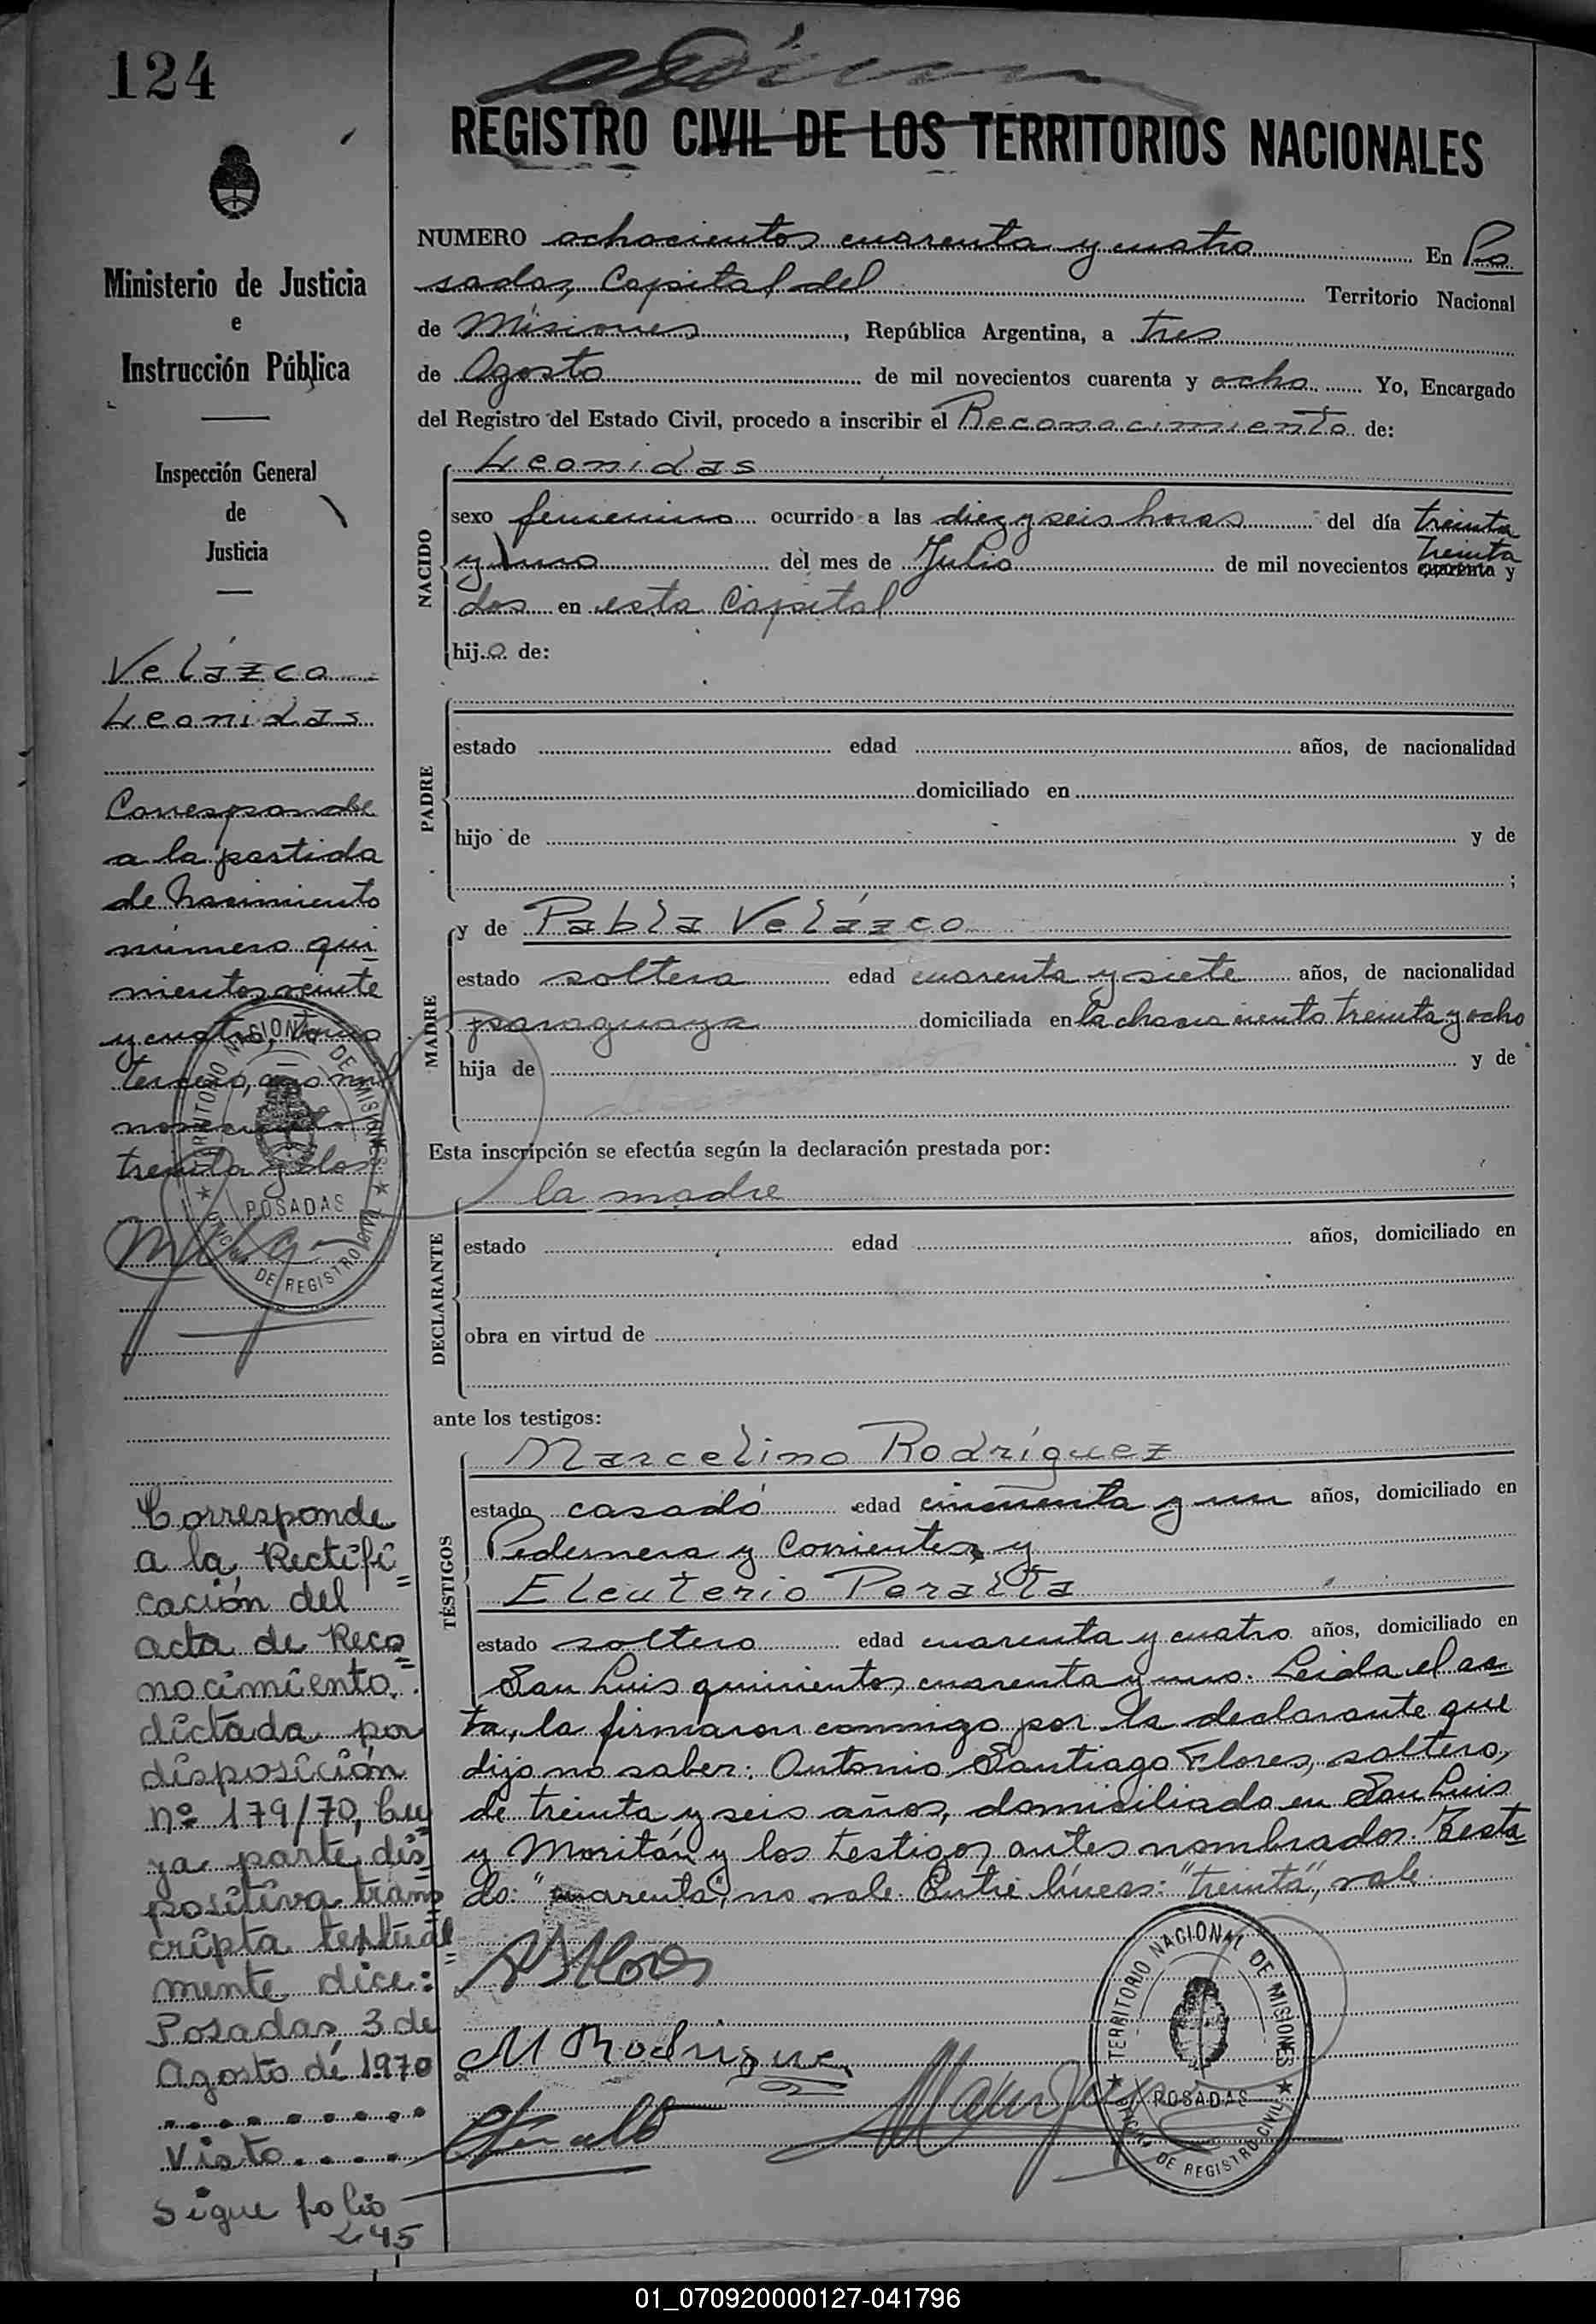 124
REGISTRO CIVIL DE LOS TERRITORIOS NACIONALES
Ministerio de Justicia
e
Instrucción Pública
Inspección General
de
Justicia
Velázco
Leonidas
Corresponde
a la partida
de Nacimiento
número qui
nientos veinte
y cuatro, tomo
tercero, año mil
novecientos
treinta y dos
TERRITORIO NACIONAL DE MISIONES
POSADAS
OFICINA DE REGISTRO CIVIL
Corresponde
a la Rectifi=
cación del
acta de Reco=
nocimiento
dictada por
disposición
nº 179/70, Cu=
ya parte dis=
positiva trans
cripta textual=
mente dice:
Posadas, 3 de
Agosto de 1970
Visto.....
Sigue folio
245
NUMERO ochocientos cuarenta y cuatro En Po
sadas, Capital del Territorio Nacional
de Misiones, República Argentina, a tres
de Agosto de mil novecientos cuarenta y ocho Yo, Encargado
del Registro del Estado Civil, procedo a inscribir el Reconocimiento de:
NACIDO
Leonidas
sexo femenino ocurrido a las diez y seis horas del día treinta
y uno del mes de Julio de mil novecientos cuarenta treinta y
dos en esta Capital
hijo de:
PADRE
estado edad años, de nacionalidad
domiciliado en
hijo de y de
;
MADRE
y de Pabla Velázco
estado soltera edad cuarenta y siete años, de nacionalidad
paraguaya domiciliada en la chacra ciento treinta y ocho
hija de y de
Esta inscripción se efectúa según la declaración prestada por:
DECLARANTE
la madre
estado edad años, domiciliado en
obra en virtud de
ante los testigos:
TESTIGOS
Marcelino Rodríguez
estado casado edad cincuenta y un años, domiciliado en
Pedernera y Corrientes y
Eleuterio Peralta
estado soltero edad cuarenta y cuatro años, domiciliado en
San Luis quinientos cuarenta y uno. Leida el ac
ta, la firmaron conmigo por la declarante que
dijo no saber: Antonio Santiago Flores, soltero,
de treinta y seis años, domiciliado en San Luis
y Moritán y los testigos antes nombrados. Testa
do: "cuarenta", no vale. Entre líneas: "treinta", vale.
M Rodriguez
TERRITORIO NACIONAL DE MISIONES
POSADAS
OFICINA DE REGISTRO CIVIL
01_070920000127-041796